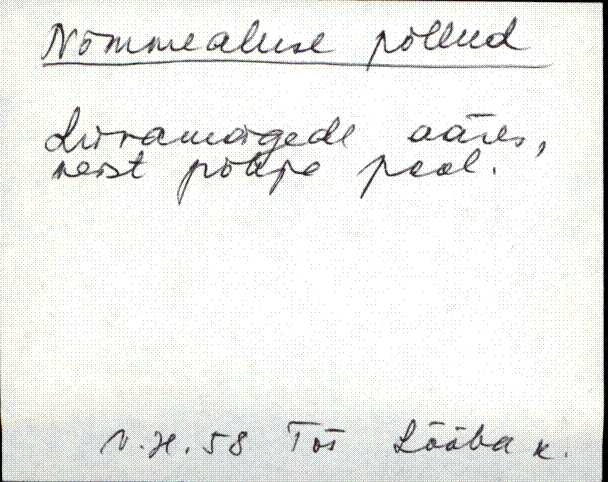 Nõmmealuse põllud
Liivamägede ääres,
neist põhja pool.
V.H. 58 Tõs Lõõba k.